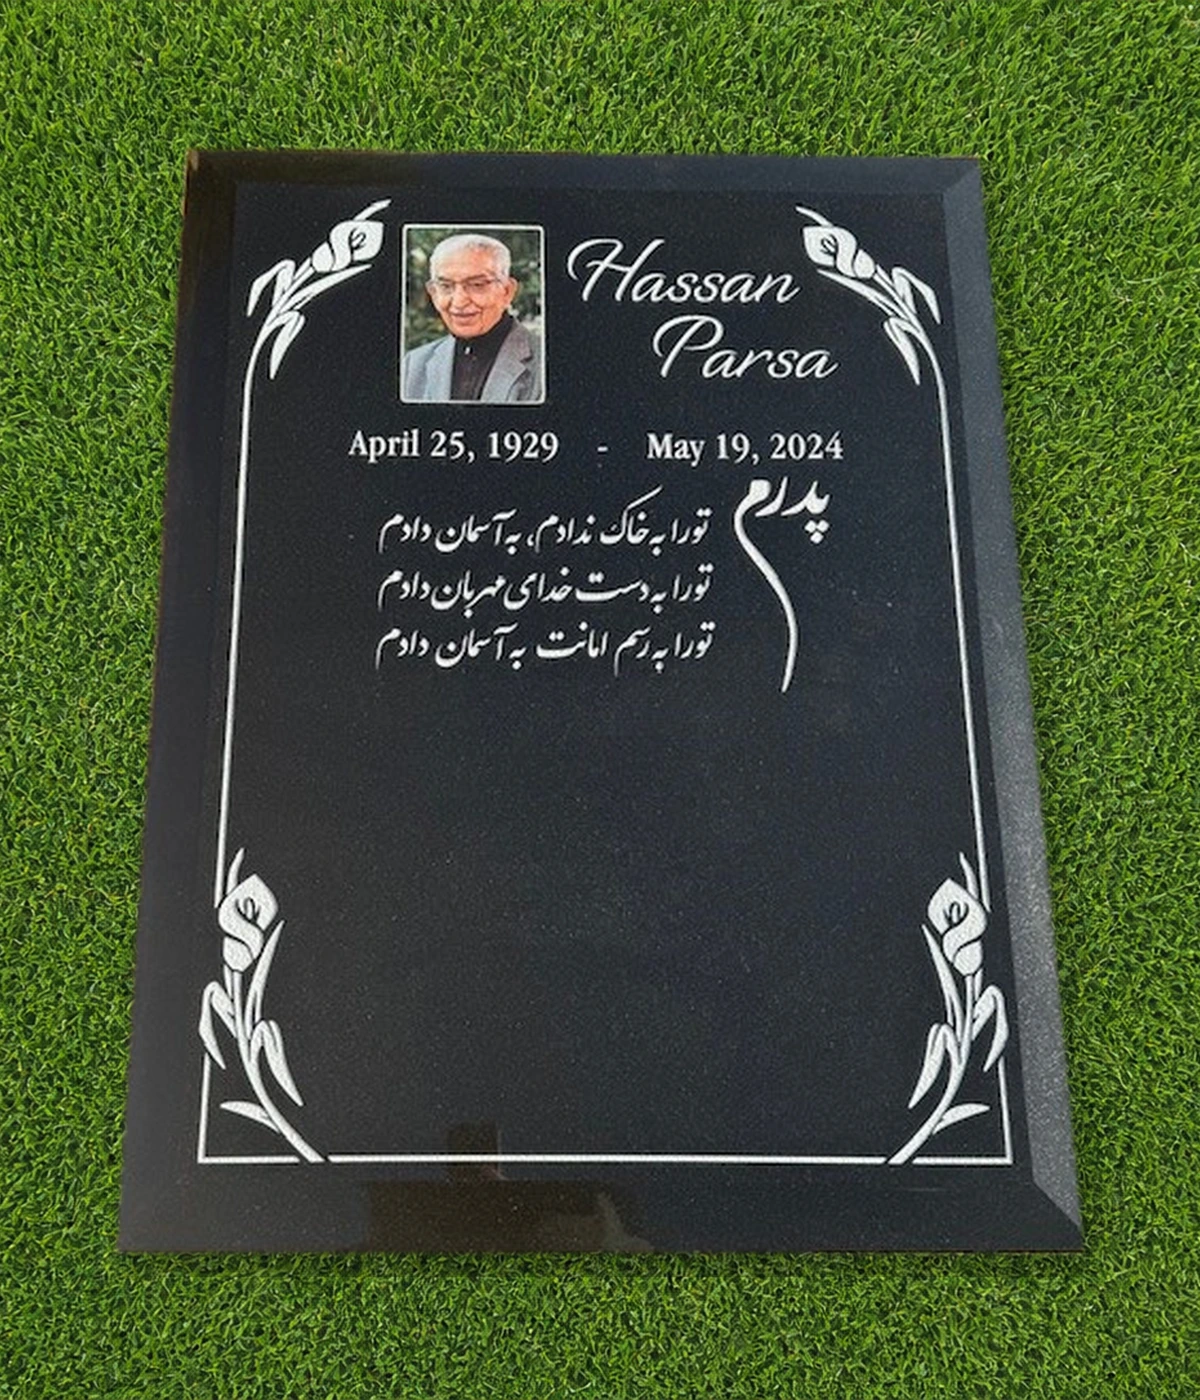 Hassan
Parsa
April 25, 1929 - May 19, 2024
پدرم
تو را به خاک ندادم، به آسمان دادم
تو را به دست خدای مهربان دادم
تو را به رسم امانت به آسمان دادم